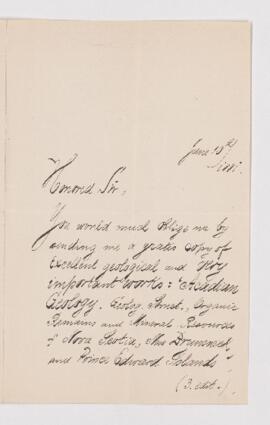 June 10th
Honored Sir,
You would much oblige me by
sending me a gratis copy of
excellent geological and very
important works: "Acadian
Geology. Geolog. Struct., Organic
Remains and Mineral Resources
of Nova Scotia, New Brunswick,
and Prince Edward Islands"
(3. edit.)